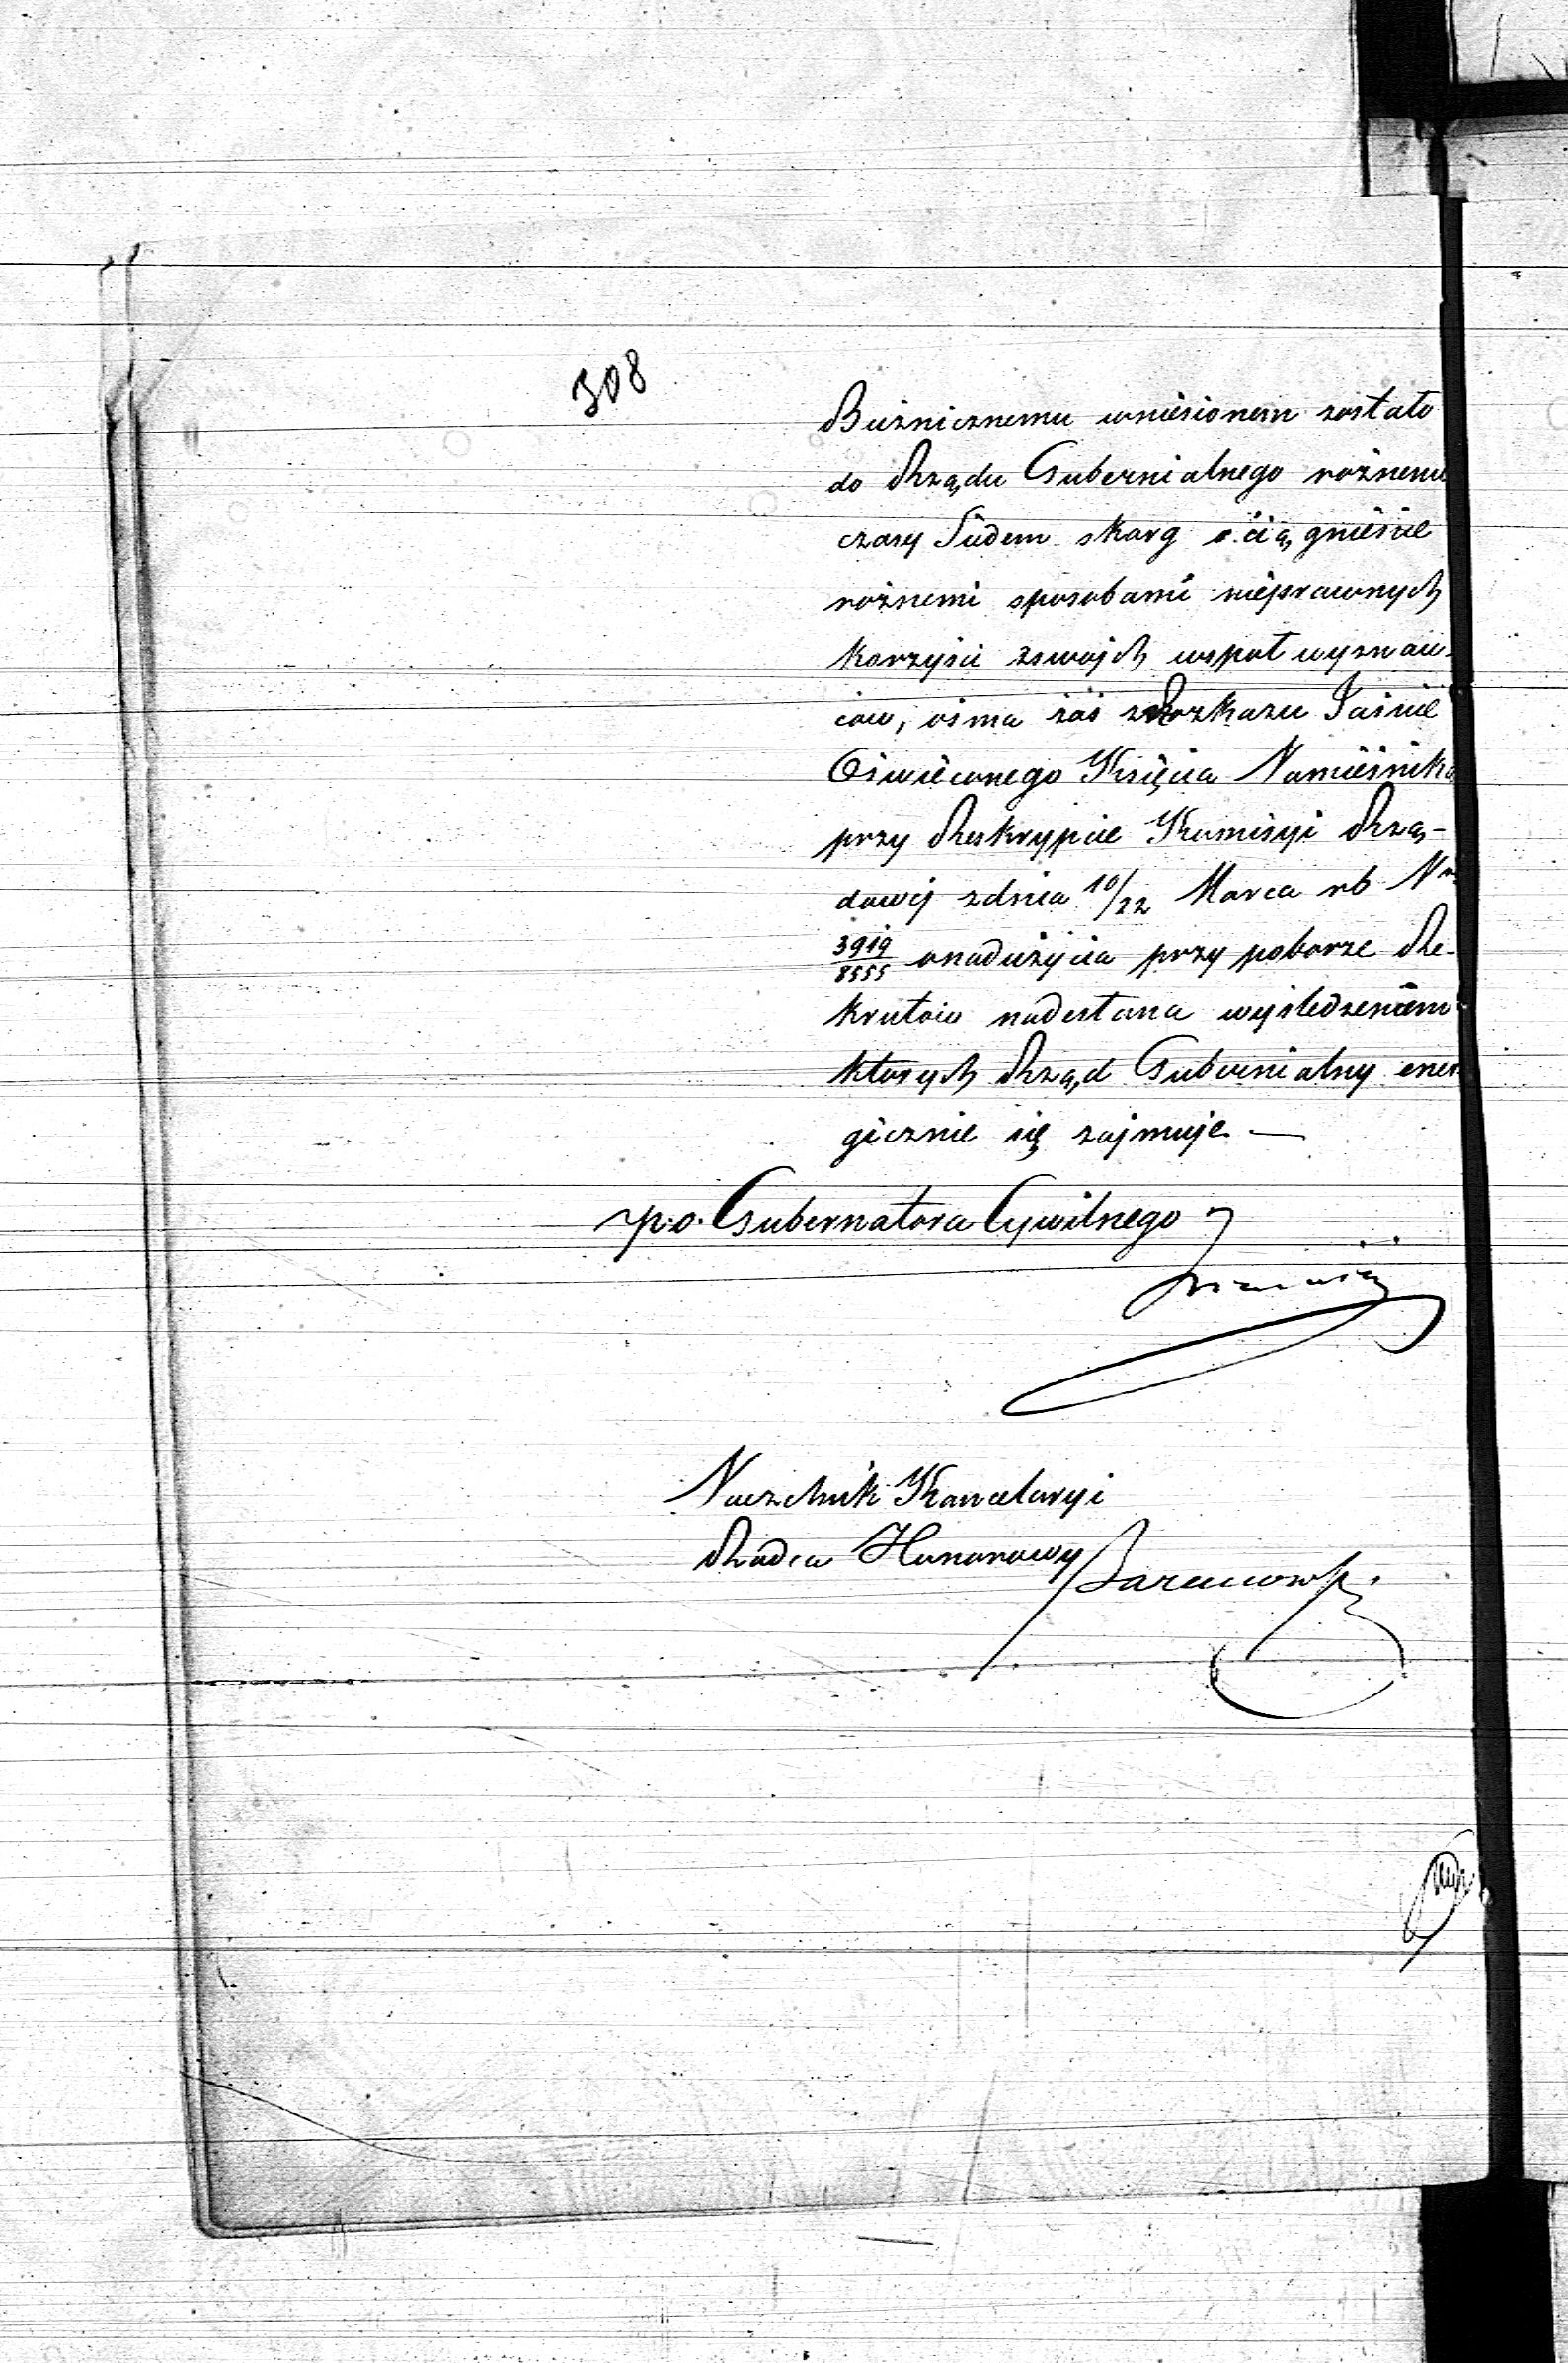 308
Bużnicznemu wniesionem zostało
do Rządu Gubernialnego rożnemi
czasy Siedem skarg o ciągnienie
rożnemi sposobami nieprawnych
korzyści zswojch wspołwyznaw-
cow, osma zaś z Rozkazu Jaśnie
Oświeconego Księcia Namiestnika
przy Reskrypcie Kommisyi Rzą-
dowej zdnia 10/22 Marca rb Nr
3919/8555 o nadużycia przy poborze Re-
krutow nadesłana wysledzeniem
ktorych Rząd Gubernialny ener
gicznie się zajmuje —
p.o. Gubernatora Cywilnego
Naczelnik Kancelaryi
Radca Honorowy Baranowski